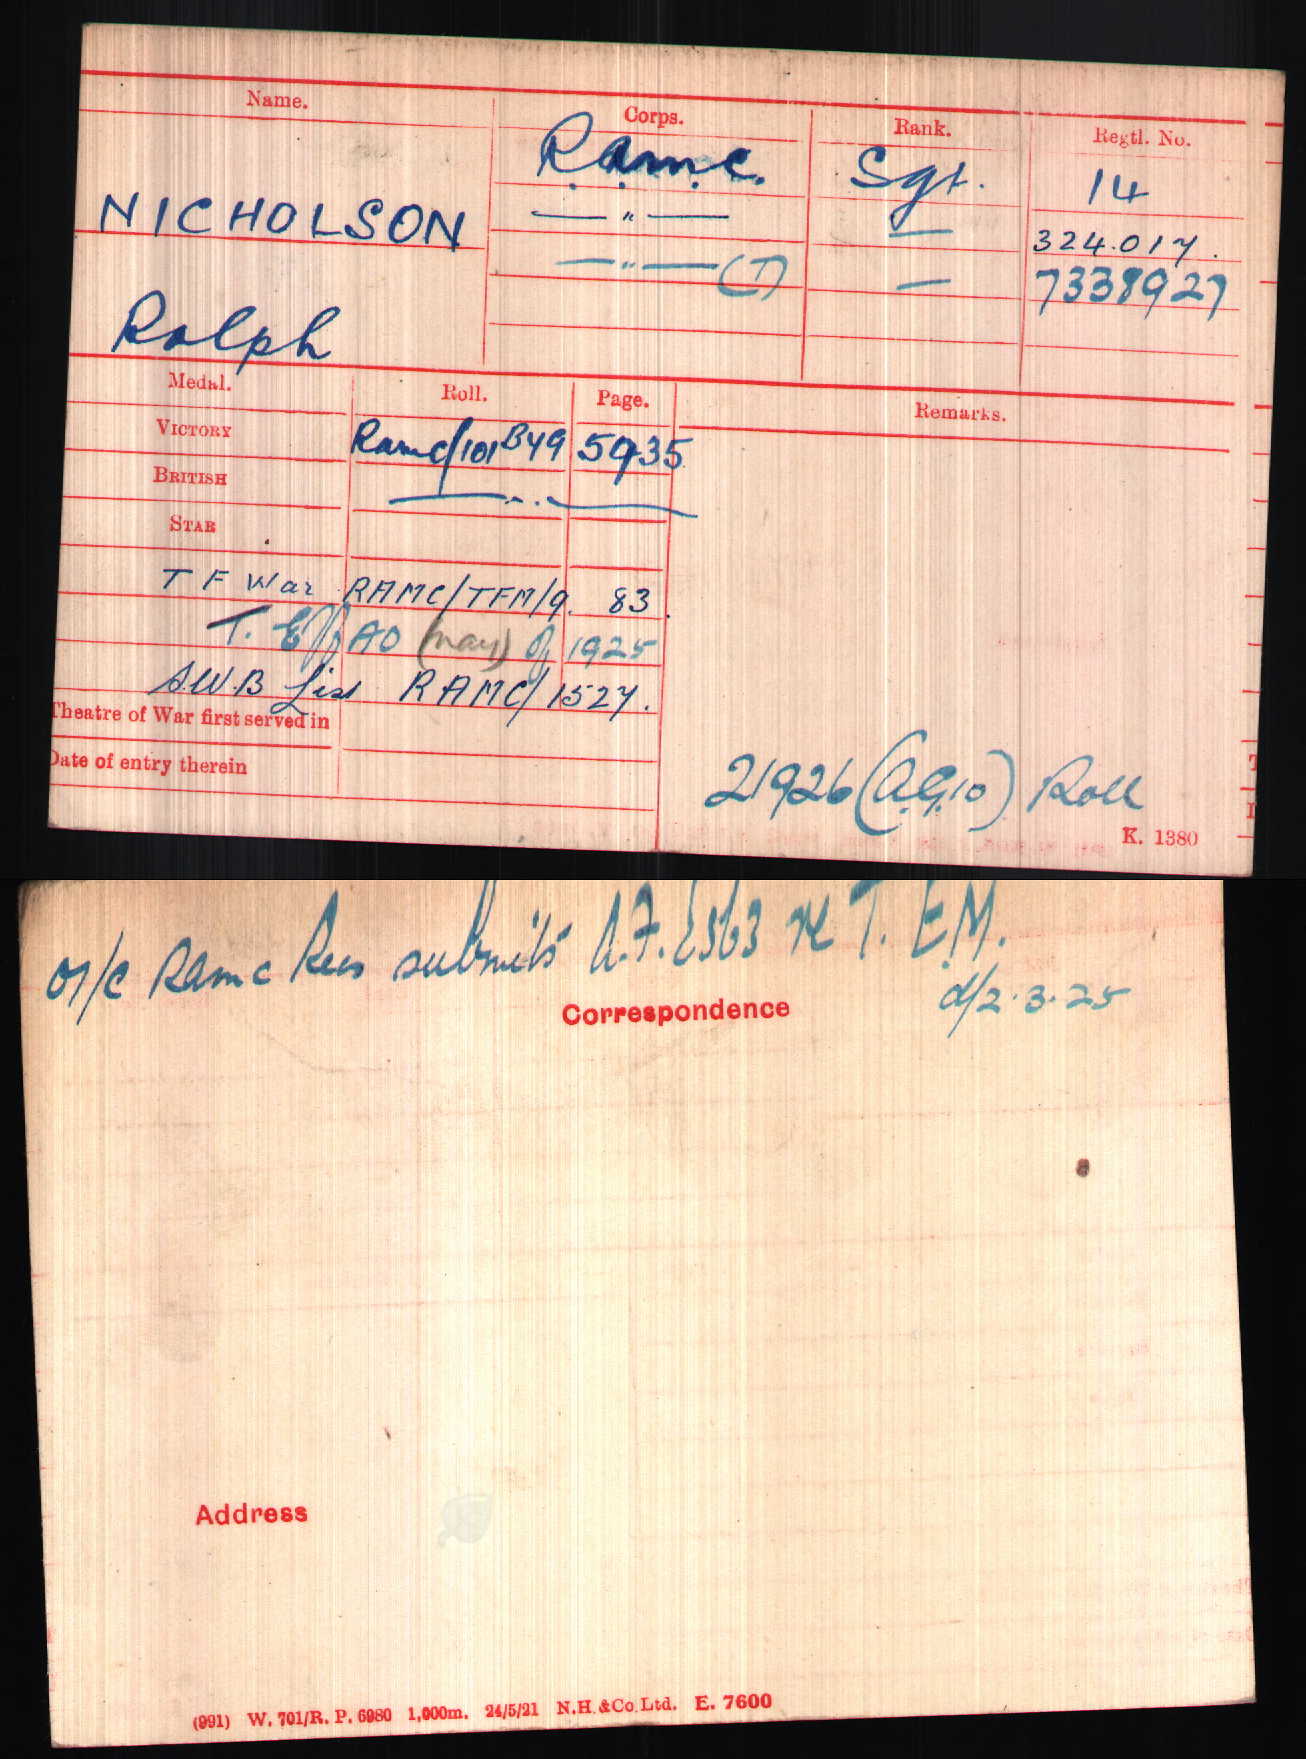 Name. Corps. Rank. Regtl. No.
R.A.M.C. Sgt. 14
NICHOLSON — " — — 324.017.
— " — (T) — 7338927
Ralph
Medal. Roll. Page. Remarks.
VICTORY RAMC/101 B49 5935
BRITISH — " —
STAR
T F War RAMC/TFM/9. 83.
T. Eff AO (May) of 1925
S.W.B List RAMC/1527.
Theatre of War first served in
Date of entry therein
21926 (A.G.10) Roll
K. 1380
O i/c RAMC Recs submits A.F. E563 re T.E.M.
d/2.3.25
Correspondence
Address
(991) W. 701/R. P. 6980 1,000m. 24/5/21 N.H.&Co.Ltd. E. 7600